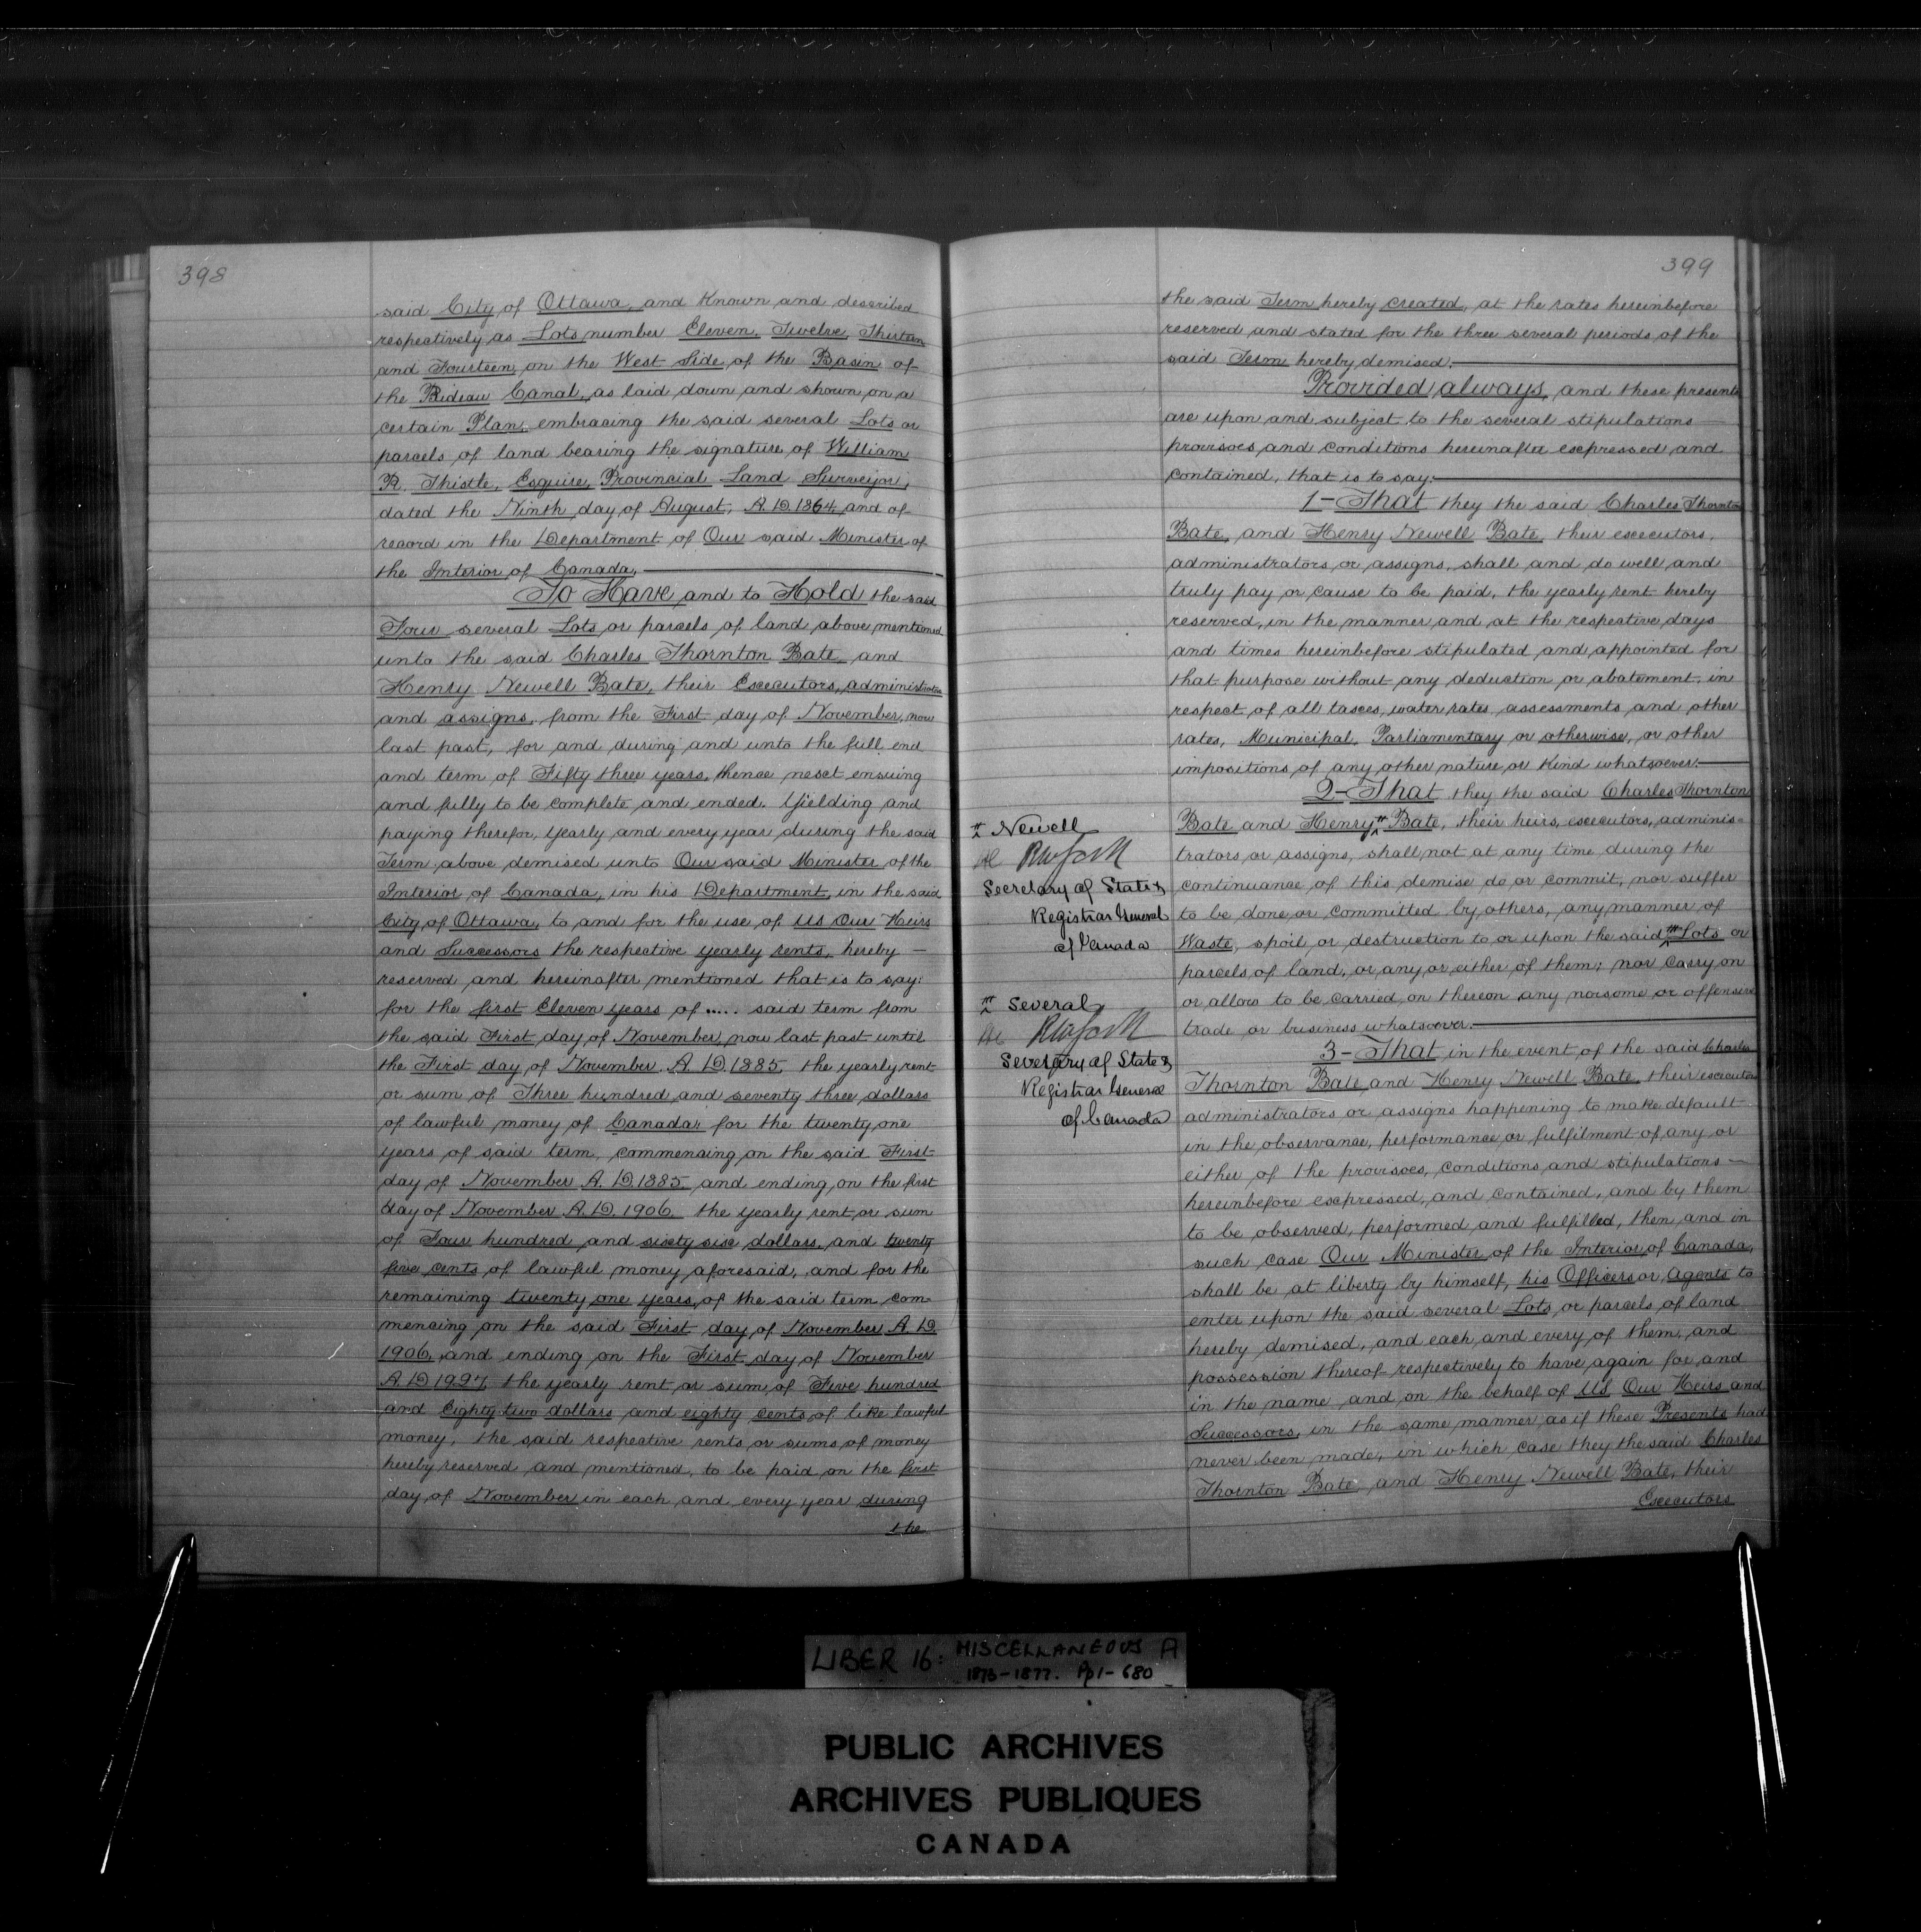 398
said City of Ottawa, and Known and described
respectively as Lots number Eleven, Twelve, Thirteen
and Fourteen, on the West Side of the Basin of
the Rideau Canal, as laid down and shown on a
certain Plan, embracing the said several Lots or
parcels of land bearing the signature of William
R. Thistle, Esquire, Provincial Land Surveyor,
dated the Ninth day of August, A.D. 1864, and of
record in the Department of Our said Minister of
the Interior of Canada.
To Have and to Hold the said
Four several Lots or parcels of land above mentioned
unto the said Charles Thornton Bate, and
Henry Newell Bate, their Executors, administrators
and assigns, from the First day of November, now
last past, for and during and unto the full end
and term of Fifty three years, thence next ensuing
and fully to be complete and ended. Yielding and
paying therefor, yearly and every year during the said
Term above demised unto Our said Minister of the
Interior of Canada, in his Department, in the said
City of Ottawa, to and for the use of Us Our Heirs
and Successors the respective yearly rents, hereby —
reserved and hereinafter mentioned that is to say:
for the first Eleven years of ..... said term from
the said First day of November, now last past until
the First day of November A.D. 1885, the yearly rent
or sum of Three hundred and seventy three dollars
of lawful money of Canada; for the twenty one
years of said term, commencing on the said First
day of November A.D. 1885 and ending on the first
day of November A.D. 1906, the yearly rent or sum
of Four hundred and sixty six dollars, and twenty
five cents of lawful money aforesaid, and for the
remaining twenty one years, of the said term com-
mencing on the said First day of November A.D.
1906, and ending on the First day of November
A.D. 1927, the yearly rent or sum, of Five hundred
and Eighty two dollars and eighty cents, of like lawful
money, the said respective rents or sums of money
hereby reserved and mentioned, to be paid on the first
day of November in each and every year during
the
399
the said Term hereby created, at the rates hereinbefore
reserved and stated for the three several periods of the
said Term hereby demised.
Provided always, and these presents
are upon and subject to the several stipulations
provisoes and conditions hereinafter expressed and
contained, that is to say:
1– That they the said Charles Thornton
Bate, and Henry Newell Bate, their executors,
administrators or assigns, shall and do well and
truly pay or cause to be paid, the yearly rent hereby
reserved, in the manner and at the respective days
and times hereinbefore stipulated and appointed for
that purpose without any deduction or abatement, in
respect of all taxes, water rates, assessments and other
rates, Municipal, Parliamentary or otherwise, or other
impositions of any other nature or Kind whatsoever.
2– That they the said Charles Thornton
Bate and Henry Bate, their heirs, executors, adminis-
trators or assigns, shall not at any time during the
continuance of this demise do or commit, nor suffer
to be done, or committed by others, any manner of
Waste, spoil or destruction to or upon the said Lots or
parcels of land, or any or either of them; nor carry on
or allow to be carried on thereon any noisome or offensive
trade or business whatsoever.
3– That in the event of the said Charles
Thornton Bate and Henry Newell Bate, their executors
administrators or assigns happening to make default
in the observance, performance or fulfilment of any or
either of the provisoes, conditions and stipulations —
hereinbefore expressed, and contained, and by them
to be observed, performed and fulfilled, then and in
such case Our Minister of the Interior of Canada,
shall be at liberty by himself, his Officers or Agents to
enter upon the said several Lots or parcels of land
hereby demised, and each and every of them, and
possession thereof respectively to have again for and
in the name and on the behalf of Us Our Heirs and
Successors, in the same manner as if these Presents had
never been made, in which case they the said Charles
Thornton Bate, and Henry Newell Bate, their
Executors
Newell
Secretary of State &
Registrar General
of Canada
Several
Secretary of State &
Registrar General
of Canada
LIBER 16: MISCELLANEOUS A
1873-1877. Pp 1-680
PUBLIC ARCHIVES
ARCHIVES PUBLIQUES
CANADA